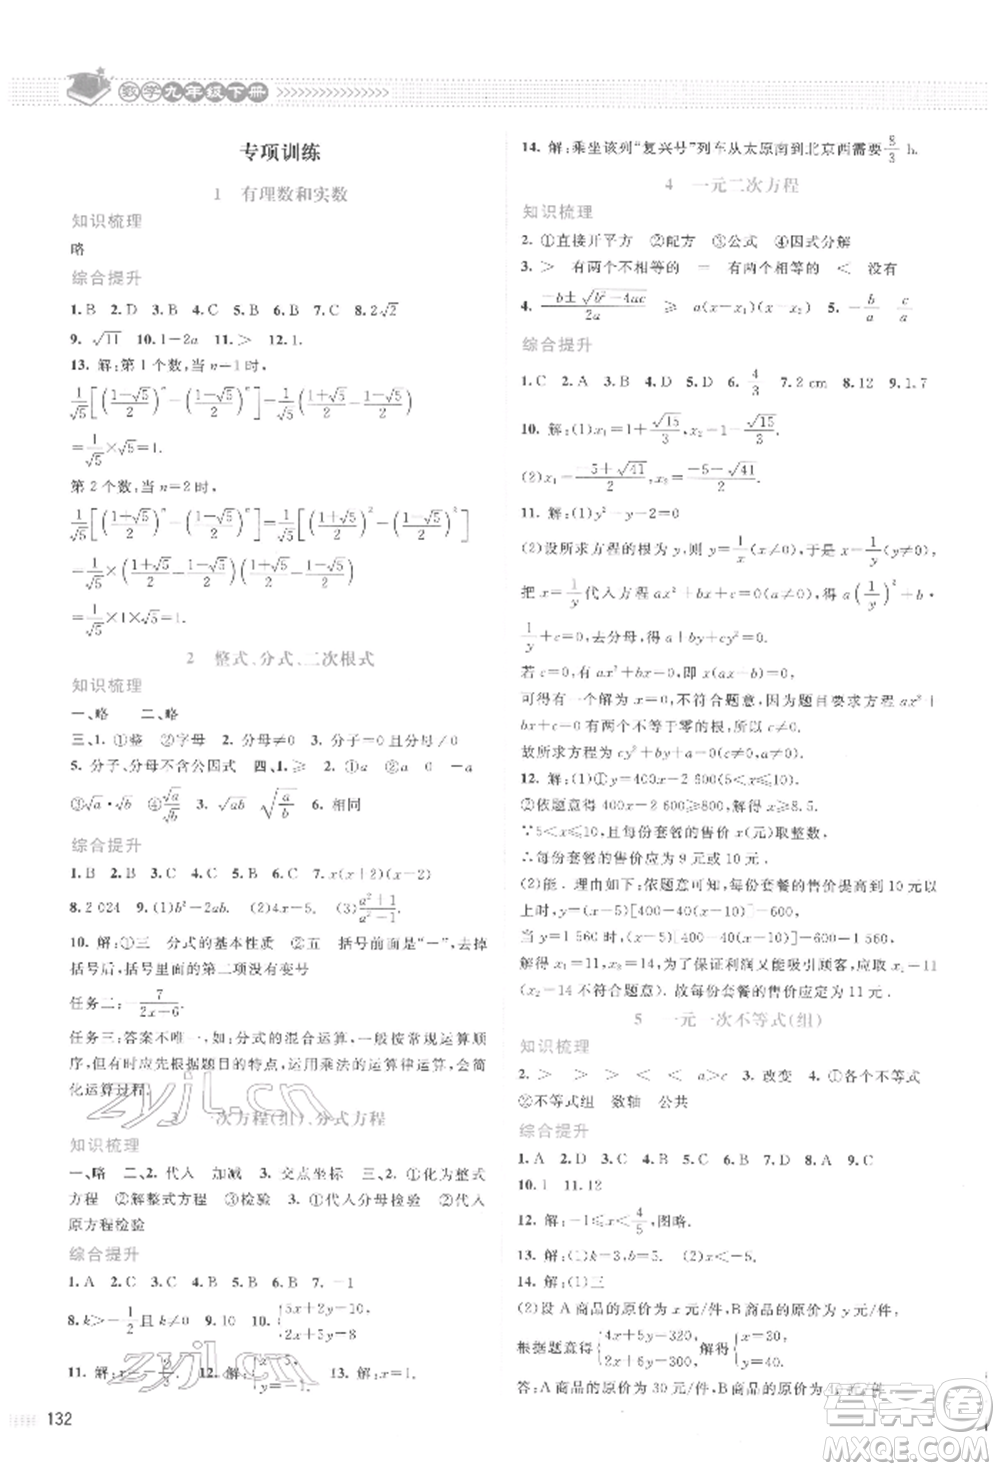 数学九年级下册
专项训练
1 有理数和实数
知识梳理
略
综合提升
1. B 2. D 3. B 4. C 5. B 6. B 7. C 8. 2√2
9. √11 10. 1-2a 11. > 12. 1.
13. 解:第 1 个数,当 n-1 时,
1/√5[((1+√5)/2)^n-((1-√5)/2)^n]=1/√5((1+√5)/2-(1-√5)/2)
=1/√5×√5=1.
第 2 个数,当 n=2 时,
1/√5[((1+√5)/2)^n-((1-√5)/2)^n]=1/√5[((1+√5)/2)²-((1-√5)/2)²]
=1/√5×((1+√5)/2+(1-√5)/2)((1+√5)/2-(1-√5)/2)
=1/√5×1×√5=1.
2 整式、分式、二次根式
知识梳理
一、略 二、略
三、1. ①整 ②字母 2. 分母≠0 3. 分子=0 且分母≠0
5. 分子、分母不含公因式 四、1. ≥ 2. ①a ②a -a
③√a·√b √a/√b 5. √ab √(a/b) 6. 相同
综合提升
1. B 2. B 3. C 4. C 5. B 6. D 7. x(x+2)(x-2)
8. 2 024 9. (1)b²-2ab. (2)4x-5. (3)(a²+1)/(a²-1).
10. 解:①三 分式的基本性质 ②五 括号前面是“-”,去掉
括号后,括号里面的第二项没有变号
任务二:-7/(2x-6)
任务三:答案不唯一,如:分式的混合运算,要按常规运算顺
序,但有时应先根据题目的特点,运用乘法的运算律运算,会简
化运算过程.
3 一次方程(组)、分式方程
知识梳理
一、略 二、2. 代入 加减 3. 交点坐标 三、2. ①化为整式
方程 ②解整式方程 ③检验 3. ①代入分母检验 ②代入
原方程检验
综合提升
1. A 2. C 3. C 4. B 5. B 6. B 7. -1
8. k>-1/2且k≠0 9. 20 10. {5x+2y-10, 2x+5y-8
11. 解:x=-. 12. 解:{ y=-1. 13. 解:x=1.
132
14. 解:乘坐该列“复兴号”列车从太原南到北京西需要 8/3 h.
4 一元二次方程
知识梳理
2. ①直接开平方 ②配方 ③公式 ④因式分解
3. > 有两个不相等的 = 有两个相等的 < 没有
4. (-b±√(b²-4ac))/2a ≥ a(x-x₁)(x-x₂) 5. -b/a c/a
综合提升
1. C 2. A 3. A 4. D 5. D 6. 4/3 7. 2 cm 8. 12 9. 1.7
10. 解:(1)x₁=1+√15/3,x₂-1-√15/3.
(2)x₁=(-5+√41)/2,x₂=(-5-√41)/2.
11. 解:(1)y²-y-2=0
(2)设所求方程的根为 y,则 y=1/x(x≠0),于是 x=1/y(y≠0),
把 x=1/y代入方程 ax²+bx+c=0,得 a(1/y)²+b·
1/y+c=0,去分母,得 a+by+cy²=0.
若 c=0,有 ax²+bx=0,即 x(ax+b)=0,
可得有一个解为 x=0,不符合题意,因为题目要求方程 ax²+
bx+c=0 有两个不等于零的根,所以 c≠0,
故所求方程为 cy²+by+a=0(c≠0).
12. 解:(1)①y=400x-2 600(5<x≤10).
②依题意得 400x-2 600≥800,解得 x≥8.5.
∵5<x≤10,且每份套餐的售价 x(元)取整数,
∴每份套餐的售价应为 9 元或 10 元.
(2)能. 理由如下:依题意可知,每份套餐的售价提高到 10 元以
上时,y=(x-5)[400-40(x-10)]-600,
当 y=1 560 时,(x-5)[400-40(x-10)]-600-1 560,
解得 x₁=11,x₂=14,为了保证利润又能吸引顾客,应取 x₁-11
(x₂-14 不符合题意). 故每份套餐的售价应定为 11 元.
5 一元一次不等式(组)
知识梳理
2. > > > < < a>c 3. 改变 4. ①各个不等式
②不等式组 数轴 公共
综合提升
1. A 2. C 3. A 4. D 5. B 6. A 7. D 8. A 9. C
10. 1 11. 12
12. 解:-1≤x<4/5,图略.
13. 解:(1)k-3,b=5. (2)-2≤x<1.
14. 解:(1)三
(2)设 A 商品的原价为 x 元/件,B 商品的原价为 y 元/件,
根据题意得{6x+5y-320, 4x+5y-260,解得{x=30, y=28.
答:A 商品的原价为 30 元/件,B
zyjl.cn
zyjl.cn
答案圈
MXQE.COM